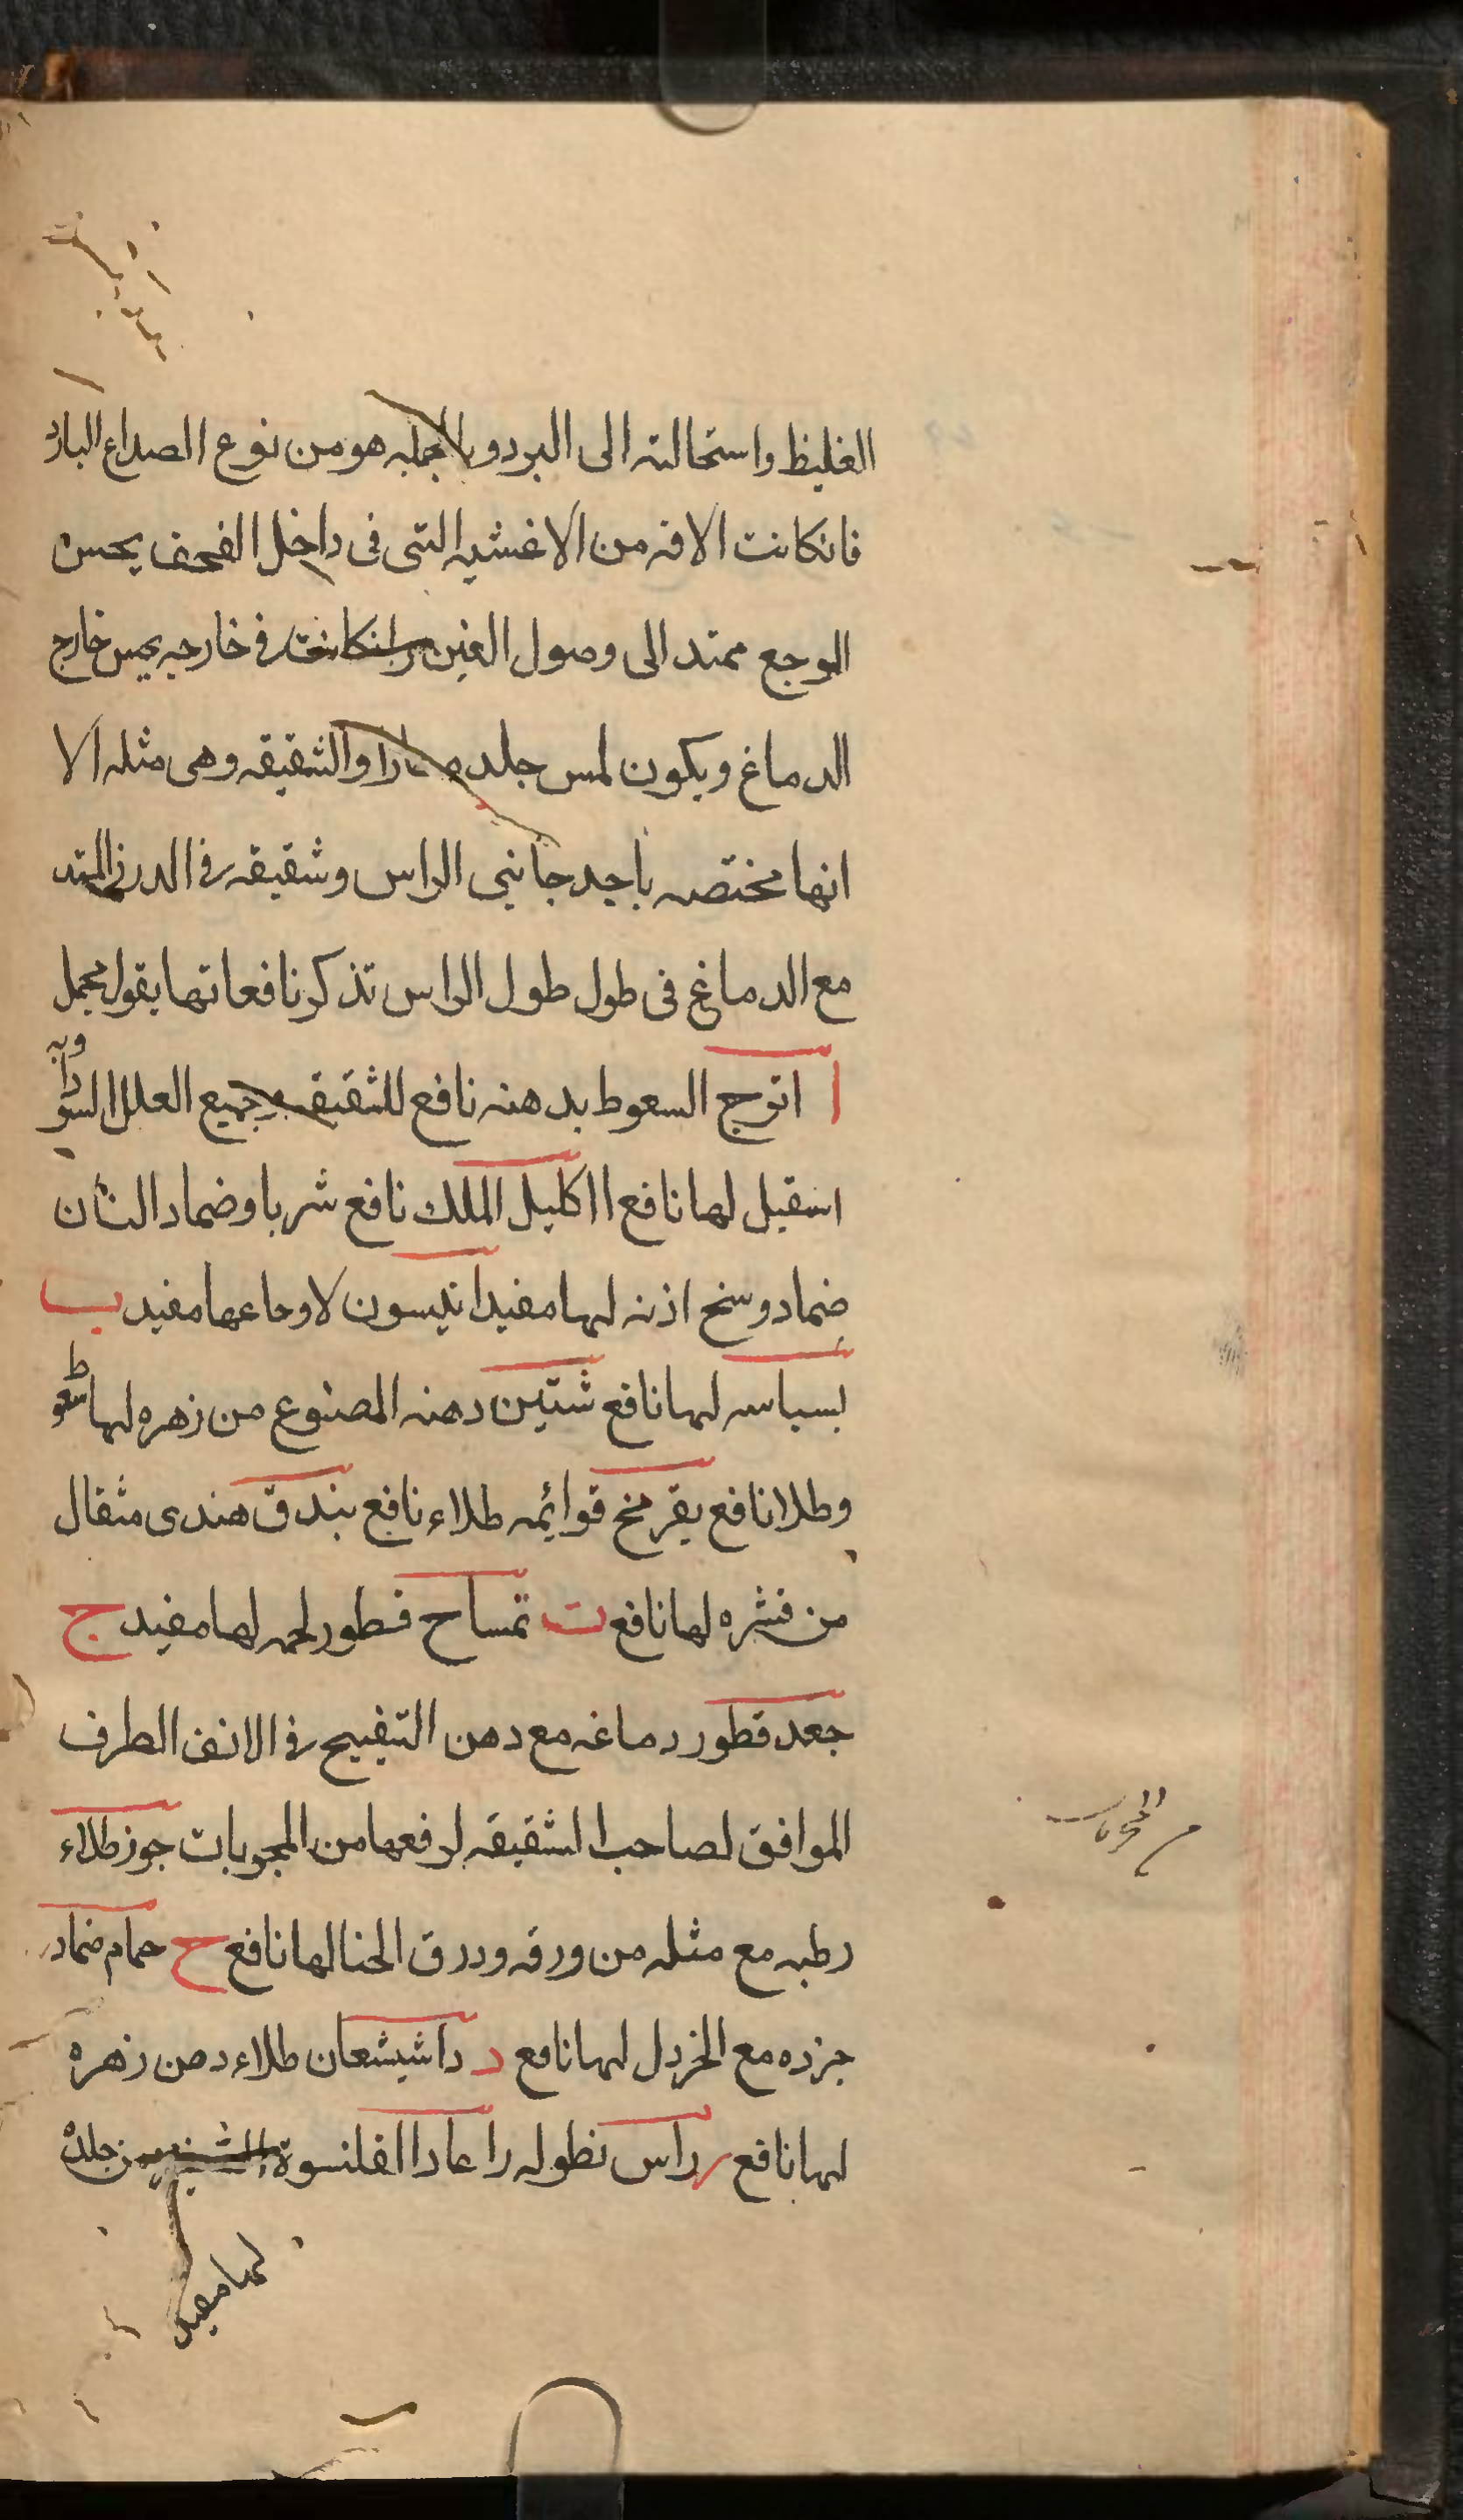 الغليظ واستحالته الى البرد وبالجمله هو من نوع الصداع البارد
فانكانت الافه من الاغشيه التى فى داخل القحف يحس
الوجع ممتد الى وصول العين وانكانت فى خارجه يحس خارج
الدماغ ويكون لمس جلده والشقيقه وهى مثله الا
انها مختصه باحد جانبى الراس وشقيقه فى الدرز الممتد
مع الدماغ فى طول طول الراس تذكر نافعاتها بقول مجمل
ا اترج السعوط بدهنه نافع للشقيقه وجميع العلل السوداويه
اسقيل لها نافع اكليل الملك نافع شربا وضماد السان
ضماد وسخ اذنه لها مفيد انيسون لاوجاعها مفيد ب
بسباسه لها نافع دهنه المصنوع من زهره لها سعوط
وطلا نافع بقر مخ قوائمه طلاء نافع بندق هندى مثقال
من قشره لها نافع ت تمساح قطور لحمه لها مفيد ج
جعد قطور دماغه مع دهن البنفسج فى الانف الطرف
الموافق لصاحب الشقيقه لرفعها من المجربات جوز طلاء
رطبه مع مثله من ورقه وورق الحنا لها نافع ح حمام ضماد
جزده مع الخردل لها نافع د داشيشعان طلاء دهن زهره
لها نافع ر راس نطوله رعاد القلنسوة من جلده
لها مفيد
من المجربات